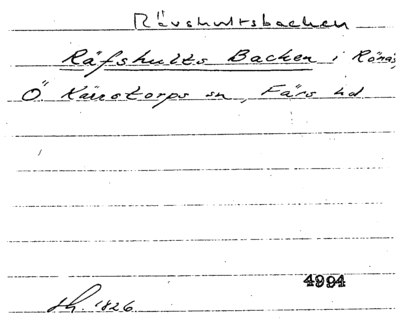 Rävshultsbacken
Räfshults Backen i Rönås,
Ö Kärstorps sn, Färs hd
4994
1826